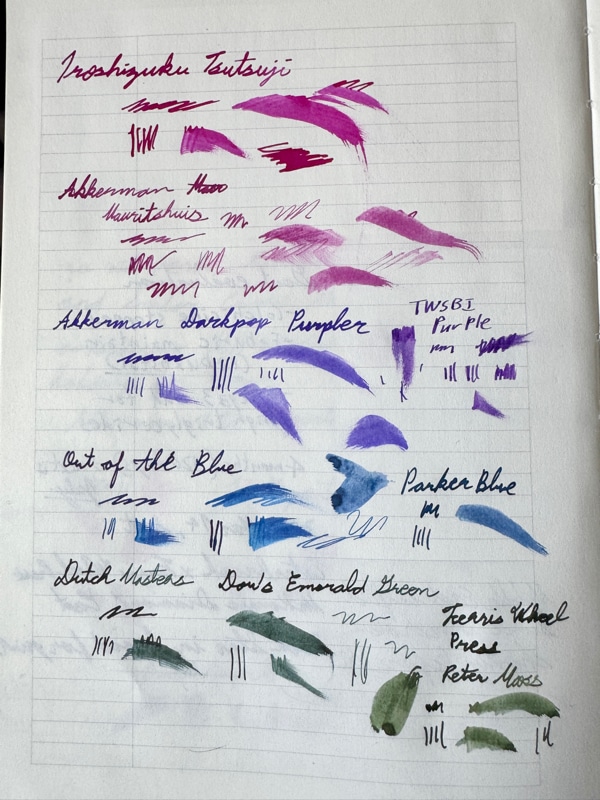 Iroshizuku Tsutsuji
Akkerman
Mauritshuis
Akkerman Darkpop Purpler
TWSBI
Purple
Out of the Blue
Parker Blue
Dutch Masters Dou's Emerald Green
Ferris Wheel
Press
Peter Moss